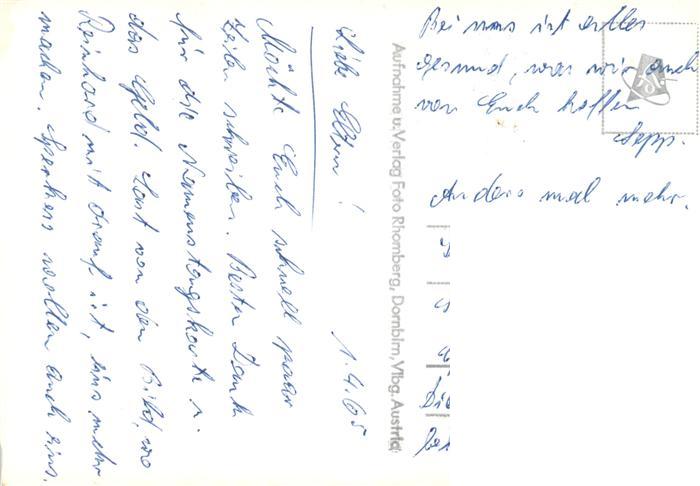 Liebe Eltern!
1.4.65
Möchte Euch schnell paar
Zeilen schreiben. Besten Dank
für die Namenstagskarte u.
das Geld. Last von den Bild, wo
Reinhard mit drauf ist, eins mehr
machen. wollen auch eins.
Bei uns ist alles
gesund, was wir auch
von Euch hoffen
Sepp.
Anders mal mehr.
Aufnahme u. Verlag Foto Rhomberg, Dornbirn, Vlbg. Austria